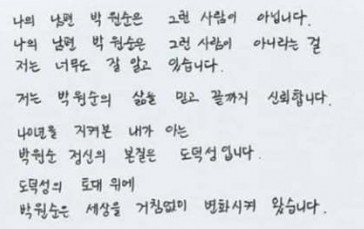 나의 남편 박 원순은 그런 사람이 아닙니다.
나의 남편 박 원순은 그런 사람이 아니라는 걸
저는 너무도 잘 알고 있습니다.
저는 박원순의 삶을 믿고 끝까지 신뢰합니다.
40년을 지켜본 내가 아는
박원순 정신의 본질은 도덕성 입니다.
도덕성의 토대 위에
박원순은 세상을 거침없이 변화시켜 왔습니다.